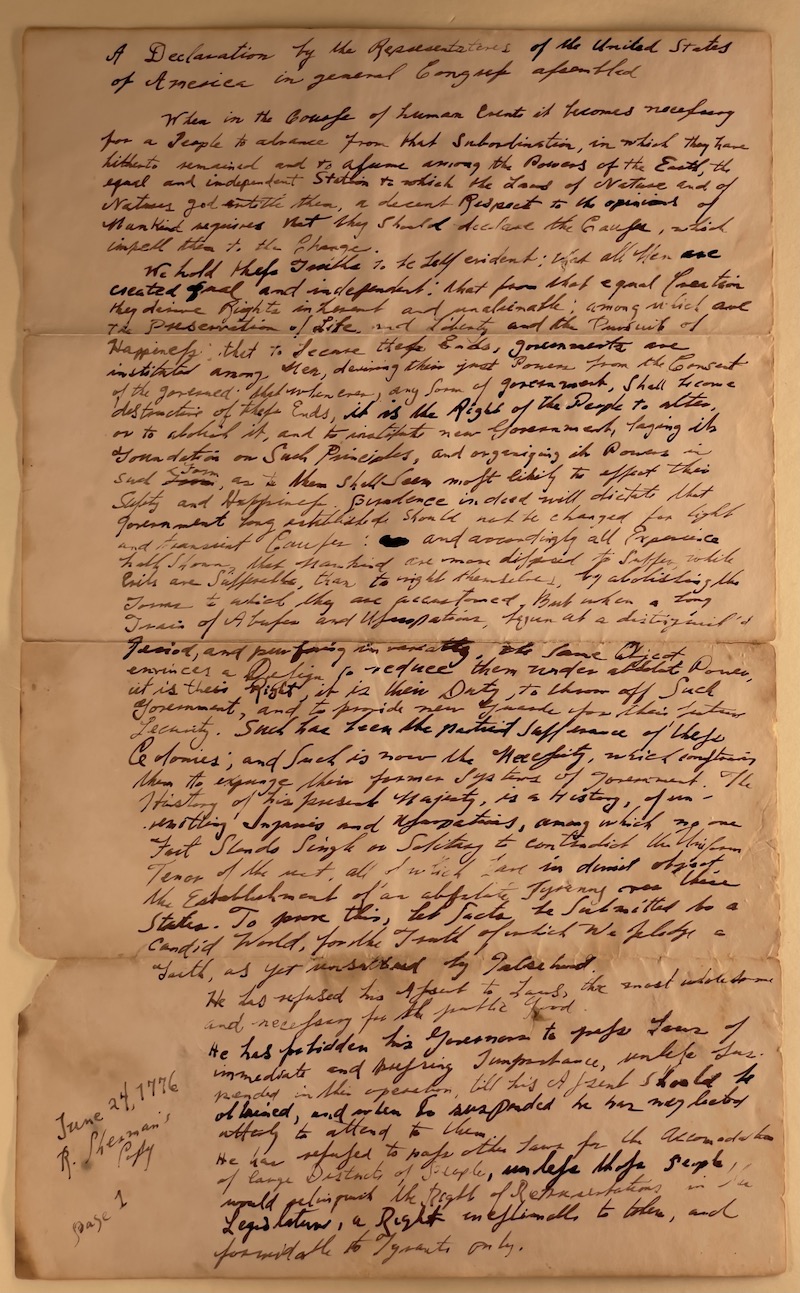 A Declaration by the Representatives of the United States
of America in general Congress assembled
When in the Course of human Events it becomes necessary
for a People to advance from that Subordination, in which they have
hitherto remained and to assume among the Powers of the Earth, the
equal and independent Station to which the Laws of Nature and of
Natures god entitle them, a decent Respect to the opinions of
Mankind requires that they Should declare the Causes, which
impell them to the Change.
We hold these Truths to be Self evident; that all Men are
created equal and independent; that from that equal Creation
they derive Rights inherent and unalienable; among which are
the Preservation of Life, and Liberty, and the Pursuit of
Happiness; that to Secure these Ends, governments are
instituted among Men, deriving their just Powers from the Consent
of the governed; that whenever, any form of government, Shall become
destructive of these Ends, it is the Right of the People to alter,
or to abolish it, and to institute new Government, laying its
Foundation on Such Principles, and organizing its Powers in
Such Form, as to them Shall Seem most likely to effect their
Safety and Happiness. Prudence indeed will dictate that
Governments long established Should not be changed for light
and transient Causes: and accordingly all Experience
hath Shown, that Mankind are more disposed to Suffer, while
Evils are Sufferable, than to right themselves, by abolishing the
Forms to which they are accustomed. But when a long
Train of Abuses and Usurpations, begun at a distinguish'd
Period, and pursuing invariably, the Same Object,
envinces a Design to reduce them under absolute Power,
it is their Right, it is their Duty, to throw off Such
Government, and to provide new Guards for their future
Security. Such has been the patient Sufferance of these
Colonies; and Such is now the Necessity, which constrains
them to expunge their former Systems of Government. The
History of his present Majesty, is a History, of un-
remitting Injuries and Usurpations, among which no one
Fact Stands Single or Solitary to contradict the Uniform
Tenor of the rest, all of which have in direct object,
the Establishment of an absolute Tyranny over these
States. To prove this, let Facts be Submitted to a
Candid World, for the Truth of which We pledge a
Faith, as yet unsullied by Falsehood.
He has refused his Assent to Laws, the most wholesome
and necessary for the public Good.
He has forbidden his Governors to pass Laws of
immediate and pressing Importance, unless sus-
pended in their operation, till his Assent Should be
obtained, and when so suspended he has neglected
utterly to attend to them.
He has refused to pass other Laws for the Accomodation
of large Districts of People, unless those People
would relinquish the Right of Representation in the
Legislature, a Right inestimable to them, and
formidable to Tyrants only.
June 24, 1776
R. Sherman's
Copy
page 1